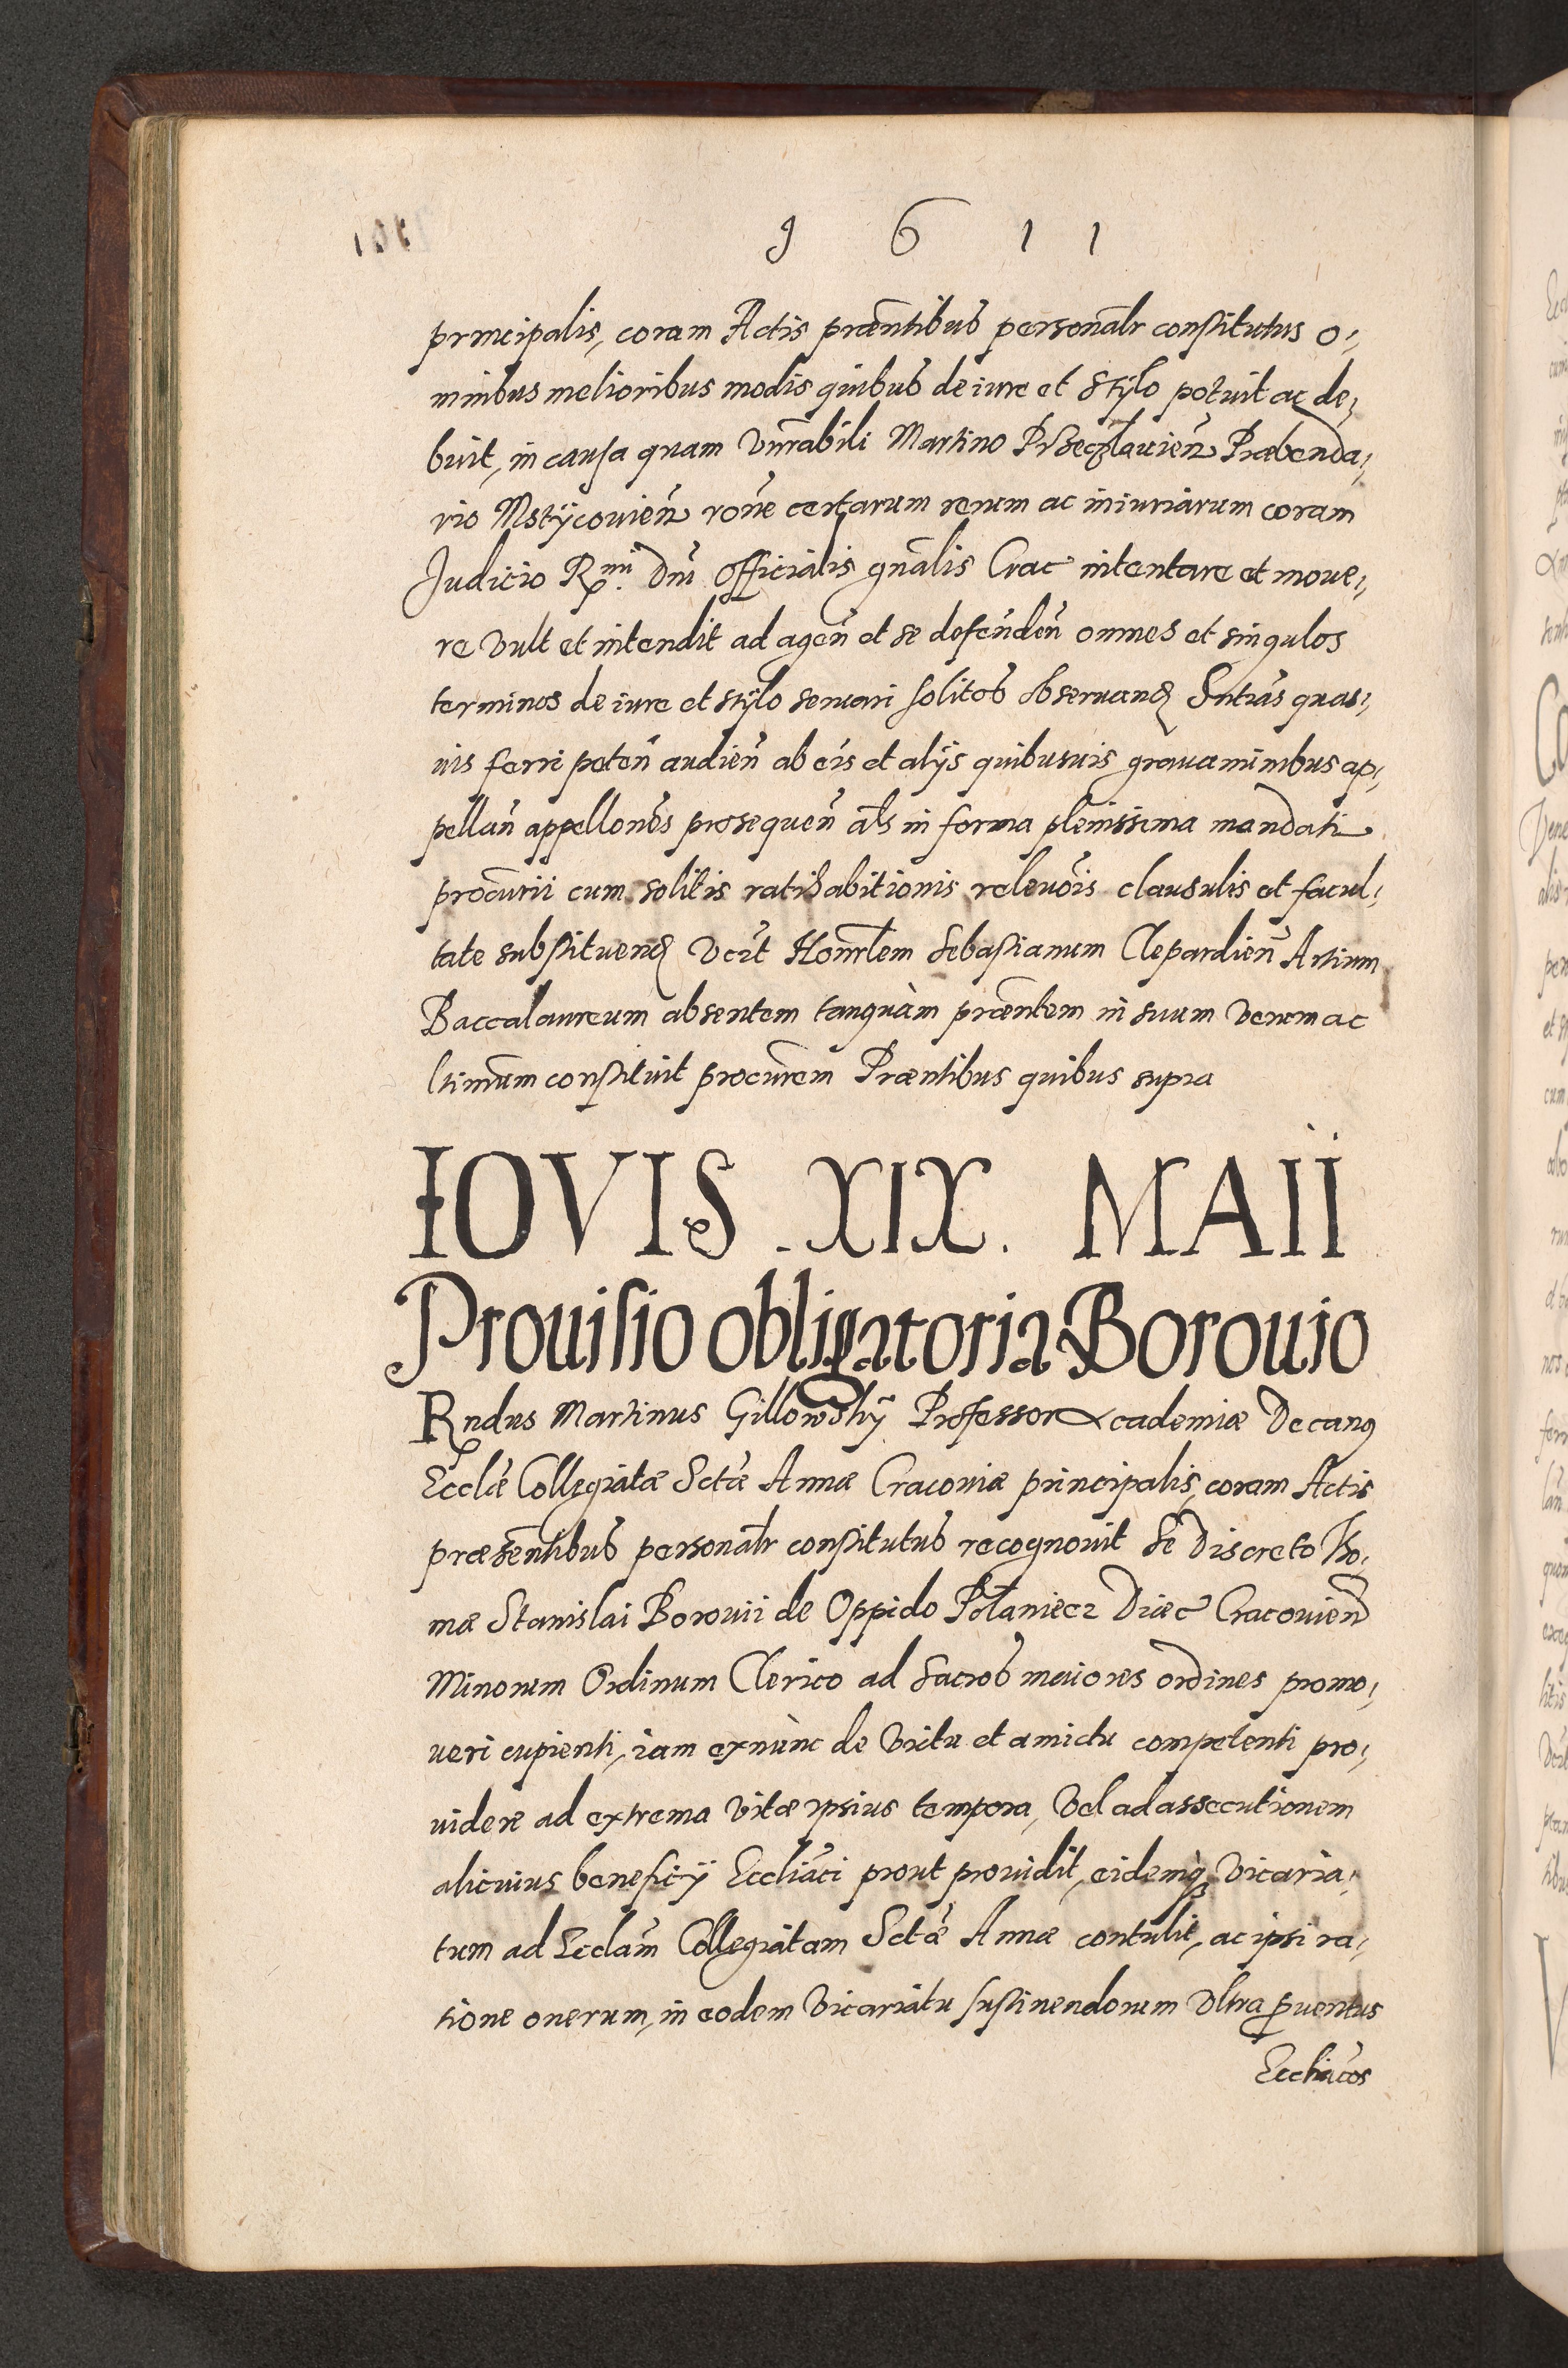 1 6 1 1
principalis, coram Actis præntibus personalr constitutus o,
mnibus melioribus modis quibus de iure et stÿlo potuit ac de,
buit, in causa quam Vnrabili Martino Przeczlauien Præbenda,
rio Mstÿcouien rone certarum rerum ac iniuriarum coram
Judicio Rmi. Dni Officialis gnalis Crac intentare et moue,
re vult et intendit ad agen et se defenden omnes et singulos
terminos de iure et stÿlo seruari solitos obseruand Sntias quas,
uis ferri peten audien ab eis et alÿs quibusuis grauaminibus ap,
pellan appellones prosequen als in forma plenissima mandati
procurii cum solitis ratihabitionis releuois clausulis et facul,
tate substituend vert Honrlem Sebastianum Clepardien Artium
Baccalaureum absentem tanquàm præntem in suum verum ac
ltimum constituit procurem Præntibus quibus supra
IOVIS . XIX . MAII
Prouisio obligatoria Borouio
Rndus Martinus Gillowskÿ Professor Academiæ Decanus
Ecclæ Collegiatæ Sctæ Annæ Cracouiæ principalis, coram Actis
præsentibus personalr constitutus recognouit se Discreto Tho,
mæ Stanislai Borouii de Oppido Połaniecz Diæc Cracouien
Minorum Ordinum Clerico ad sacros maiores ordines promo,
ueri cupienti, iam exnùnc de victu et amictu competenti pro,
uidere ad extrema vitæ ipsius tempora, vel ad assecutionem
alicuius beneficÿ Eccliaci prout prouidit, eidemq vicaria,
tum ad Ecclam Collegiatam Sctæ Annæ contulit, ac ipsi ra,
tione onerum, in eodem vicariatu sustinendorum vltra puentus
Eccliacos